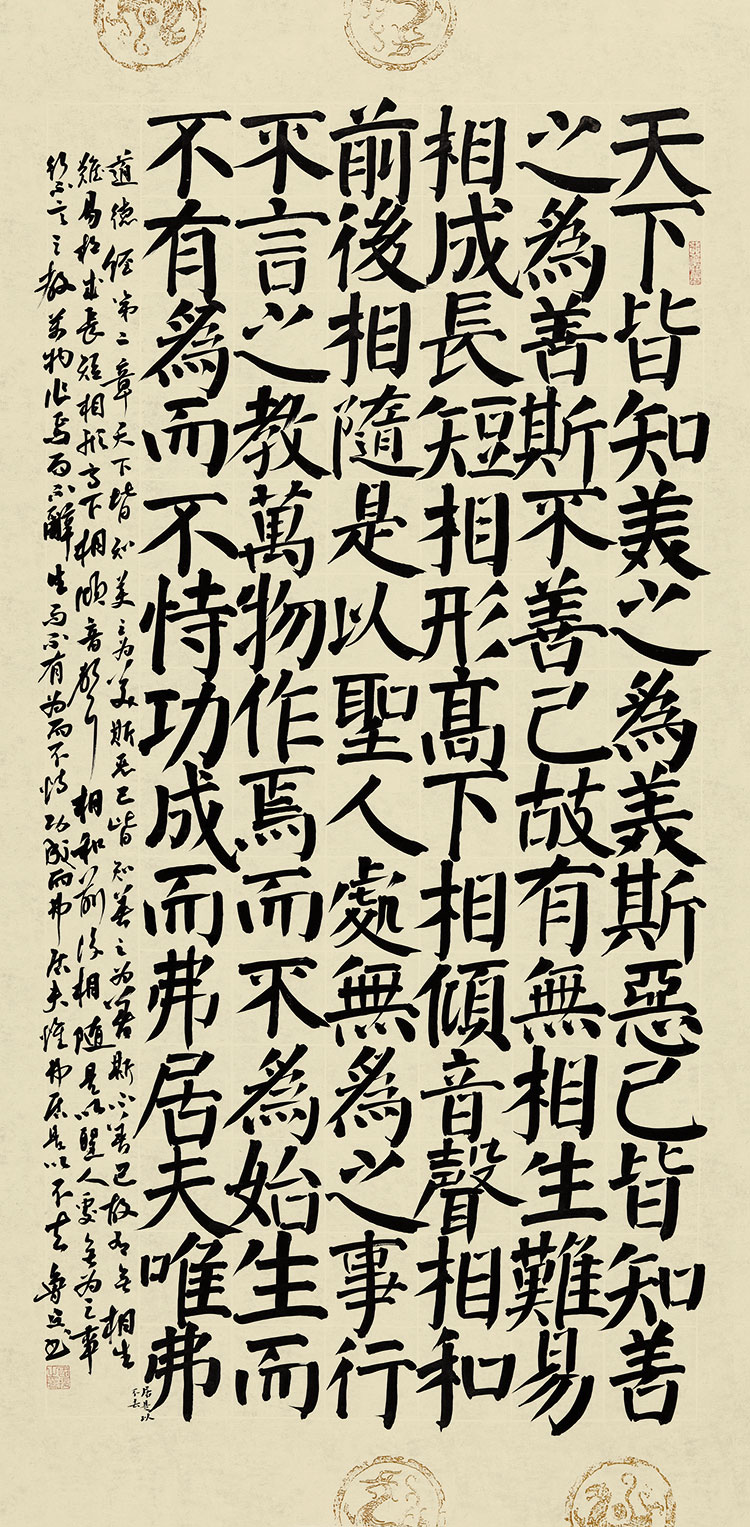 天下皆知美之為美斯惡己皆知善
之為善斯不善己故有無相生難易
相成長短相形髙下相傾音聲相和
前後相隨是以聖人處無為之事行
不言之教萬物作焉而不為始生而
不有為而不恃功成而弗居夫唯弗
居是以
不去
道德經第二章天下皆知美之为美斯惡已皆知善之为善斯不善已故有无相生
難易相成長短相形高下相傾音聲相和前後相随是以聖人處无为之事
行不言之教万物作焉而不辭生而不有为而不恃功成而弗居夫惟弗居是以不去